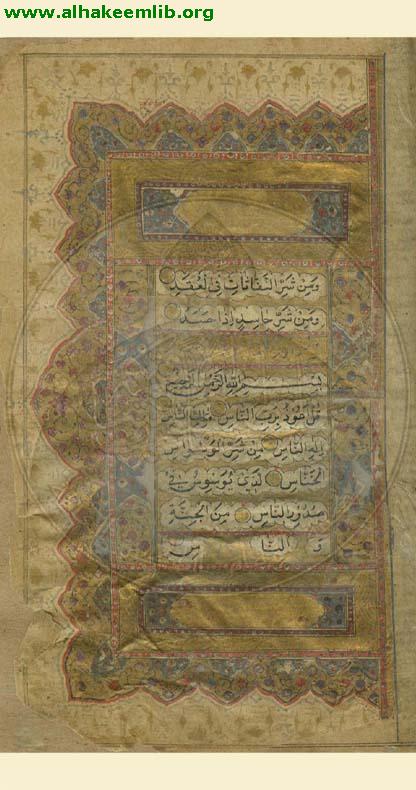 www.alhakeemlib.org
وَمِنْ شَرِّ النَّفَّاثَاتِ فِي الْعُقَدِ
وَمِنْ شَرِّ حَاسِدٍ إِذَا حَسَدَ
بِسْمِ اللهِ الرَّحْمٰنِ الرَّحِيمِ
قُلْ أَعُوذُ بِرَبِّ النَّاسِ مَلِكِ النَّاسِ
إِلٰهِ النَّاسِ مِنْ شَرِّ الْوَسْوَاسِ
الْخَنَّاسِ الَّذِي يُوَسْوِسُ فِي
صُدُورِ النَّاسِ مِنَ الْجِنَّةِ
وَ النَّا سِ